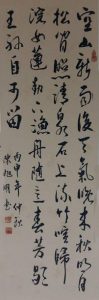 空山新雨後天氣晚來秋明月
松間照清泉石上流竹喧歸
浣女蓮動下漁舟隨意春芳歇
王孫自可留
丙申年仲秋